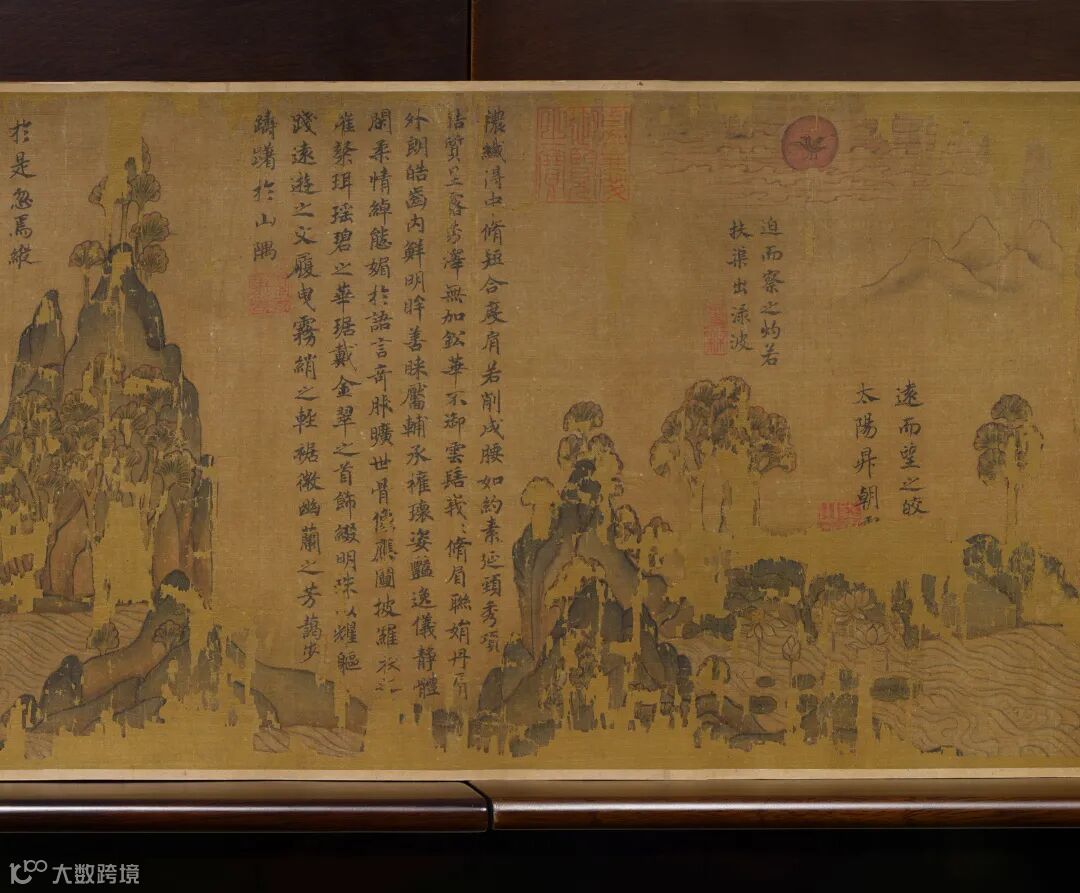 遠而望之皎
太陽昇朝
迫而察之灼若
扶渠出渌波
濃纖得中脩短合度肩若削成腰如約素延頸秀項
質呈露芳澤無加鈆華不御雲髻峩〻脩眉聯娟丹脣
外朗皓齒内鮮明眸善睞靨輔承權瓌姿豔逸儀静體
閑柔情綽態媚於語言奇服曠世骨像應圖披羅衣
璀粲珥瑶碧之華琚戴金翠之首飾綴明珠以耀軀
踐遠遊之文履曳霧綃之輕裾微幽蘭之芳藹步
躊躇於山隅
於是忽焉縱
大数跨境